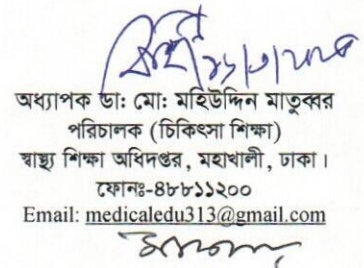 অধ্যাপক ডা: মো: মহিউদ্দিন মাতুব্বর
পরিচালক (চিকিৎসা শিক্ষা)
স্বাস্থ্য শিক্ষা অধিদপ্তর, মহাখালী, ঢাকা।
ফোনঃ-৪৮৮১১২০০
Email: medicaledu313@gmail.com